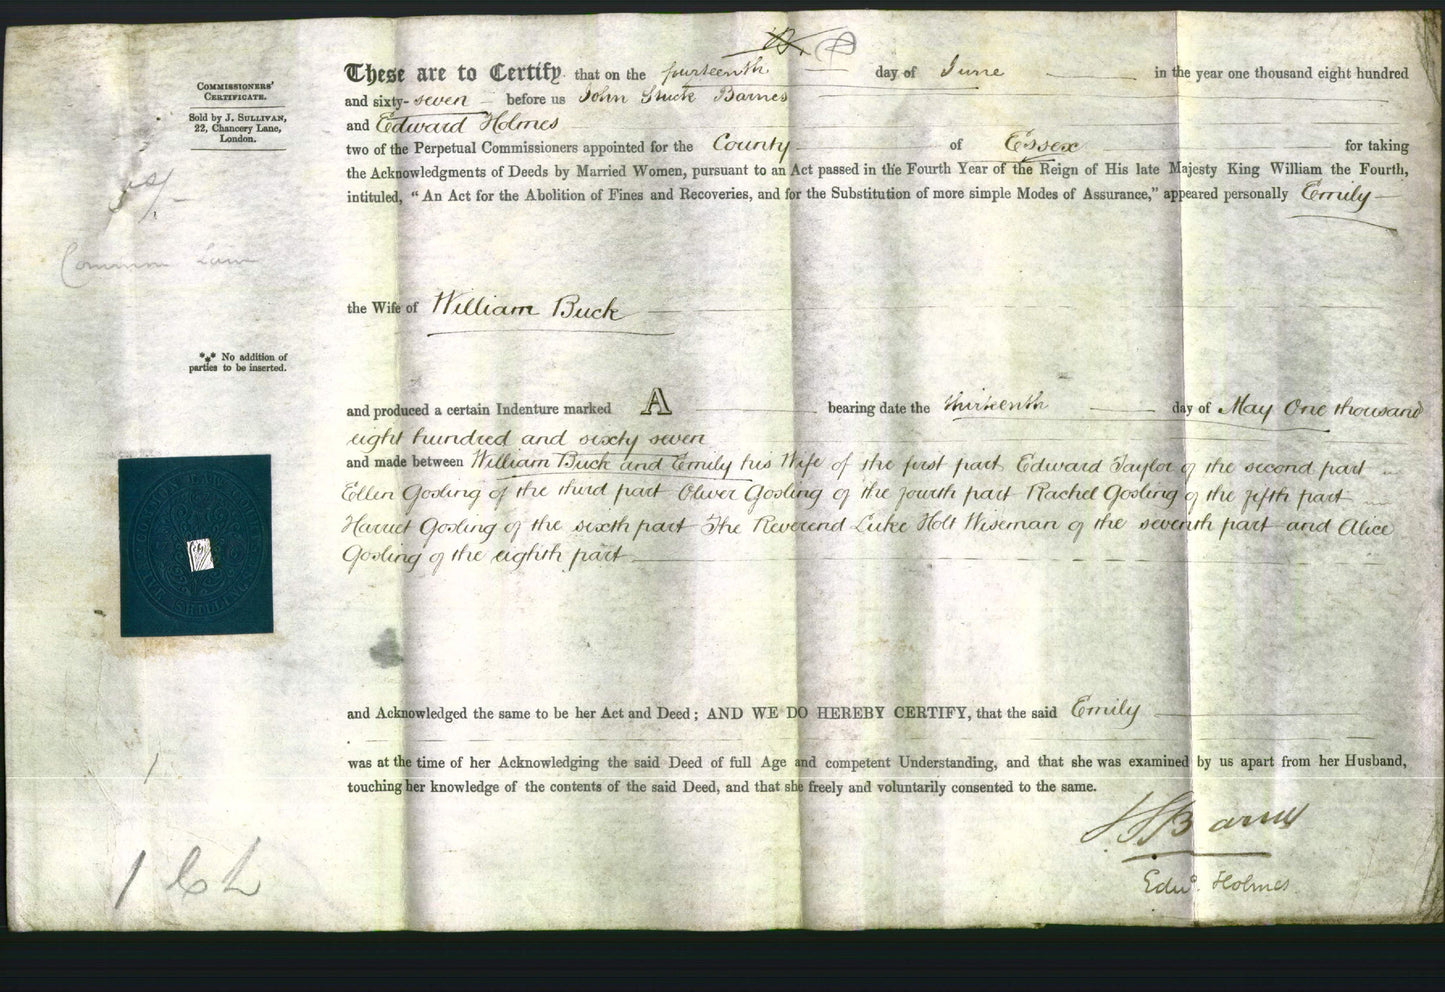 COMMISSIONERS'
CERTIFICATE.
Sold by J. SULLIVAN,
22, Chancery Lane,
London.
Common Law
*** No addition of
parties to be inserted.
COMMON LAW
FIVE SHILLINGS
These are to Certify that on the fourteenth day of June in the year one thousand eight hundred
and sixty-seven before us John Stuck Barnes
and Edward Holmes
two of the Perpetual Commissioners appointed for the County of Essex for taking
the Acknowledgments of Deeds by Married Women, pursuant to an Act passed in the Fourth Year of the Reign of His late Majesty King William the Fourth,
intituled, "An Act for the Abolition of Fines and Recoveries, and for the Substitution of more simple Modes of Assurance," appeared personally Emily
the Wife of William Buck
and produced a certain Indenture marked A bearing date the thirteenth day of May One thousand
eight hundred and sixty seven
and made between William Buck and Emily his Wife of the first part Edward Taylor of the second part
Ellen Gosling of the third part Oliver Gosling of the fourth part Rachel Gosling of the fifth part
Harriet Gosling of the sixth part The Reverend Luke Holt Wiseman of the seventh part and Alice
Gosling of the eighth part
and Acknowledged the same to be her Act and Deed; AND WE DO HEREBY CERTIFY, that the said Emily
was at the time of her Acknowledging the said Deed of full Age and competent Understanding, and that she was examined by us apart from her Husband,
touching her knowledge of the contents of the said Deed, and that she freely and voluntarily consented to the same.
J S Barnes
Edwd. Holmes